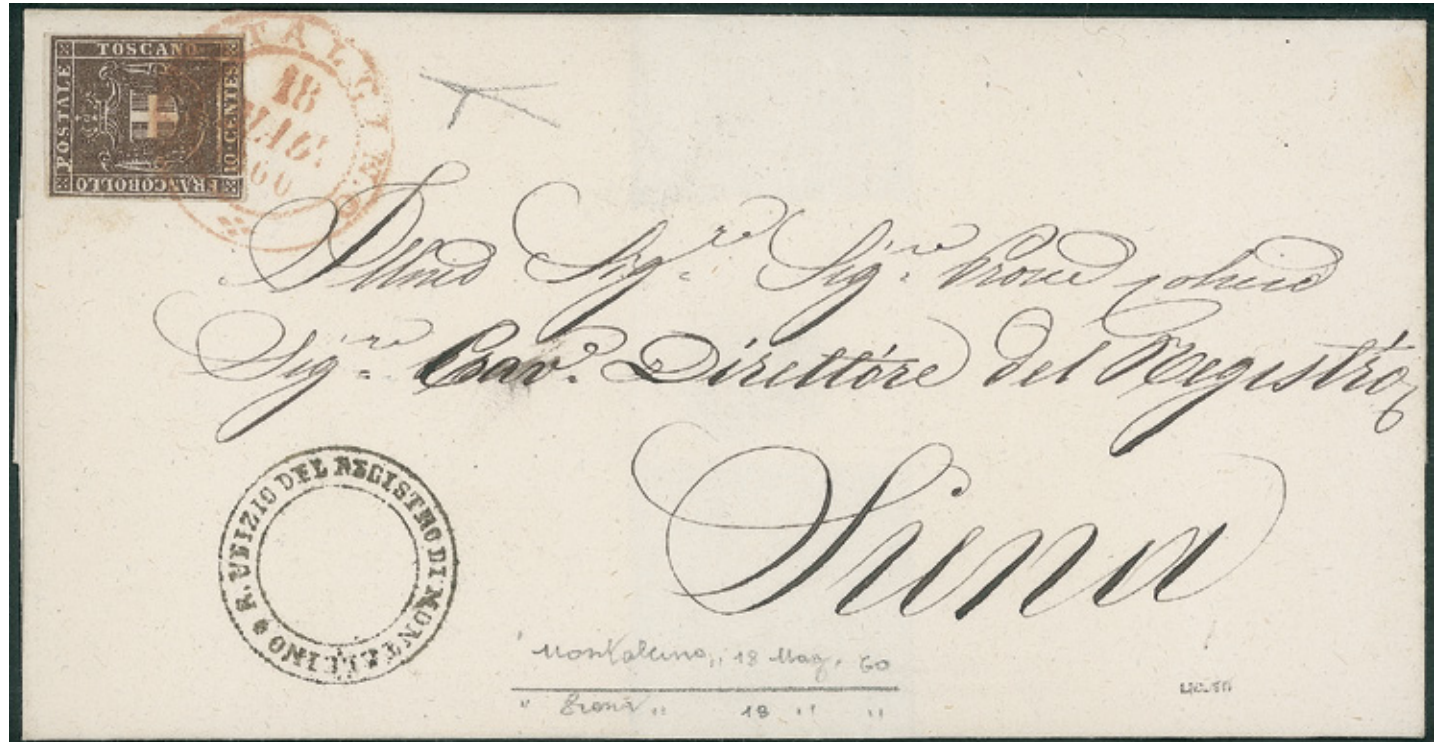 FRANCOBOLLO POSTALE TOSCANO 10 CENTES
MONTALCINO
18
MAG.
60
Illmo Sigre Sigre Prone
Sigre Cav. Direttore del Registro
Siena
R. UFIZIO DEL REGISTRO DI MONTALCINO
Montalcino,, 18 Mag. 60
" Siena ,, 18 " "